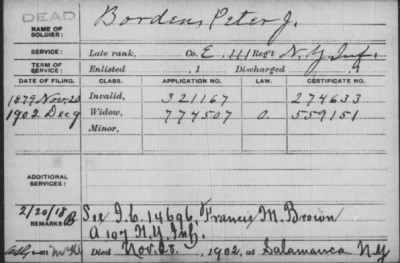 DEAD
NAME OF SOLDIER: Borden, Peter J.
SERVICE: Late rank, Co. E, 111 Reg't N.Y. Inf.
TERM OF SERVICE: Enlisted , 1 Discharged , 1
DATE OF FILING. CLASS. APPLICATION NO. LAW. CERTIFICATE NO.
1879 Nov. 20 Invalid, 321167 274633
1902 Dec 9 Widow, 774507 0. 559151
Minor,
ADDITIONAL SERVICES:
2/20/18 See I.C. 14696, Francis M. Brown
REMARKS: A 107 N.Y. Inf.
Died Nov. 28, 1902, at Salamanca N.Y.